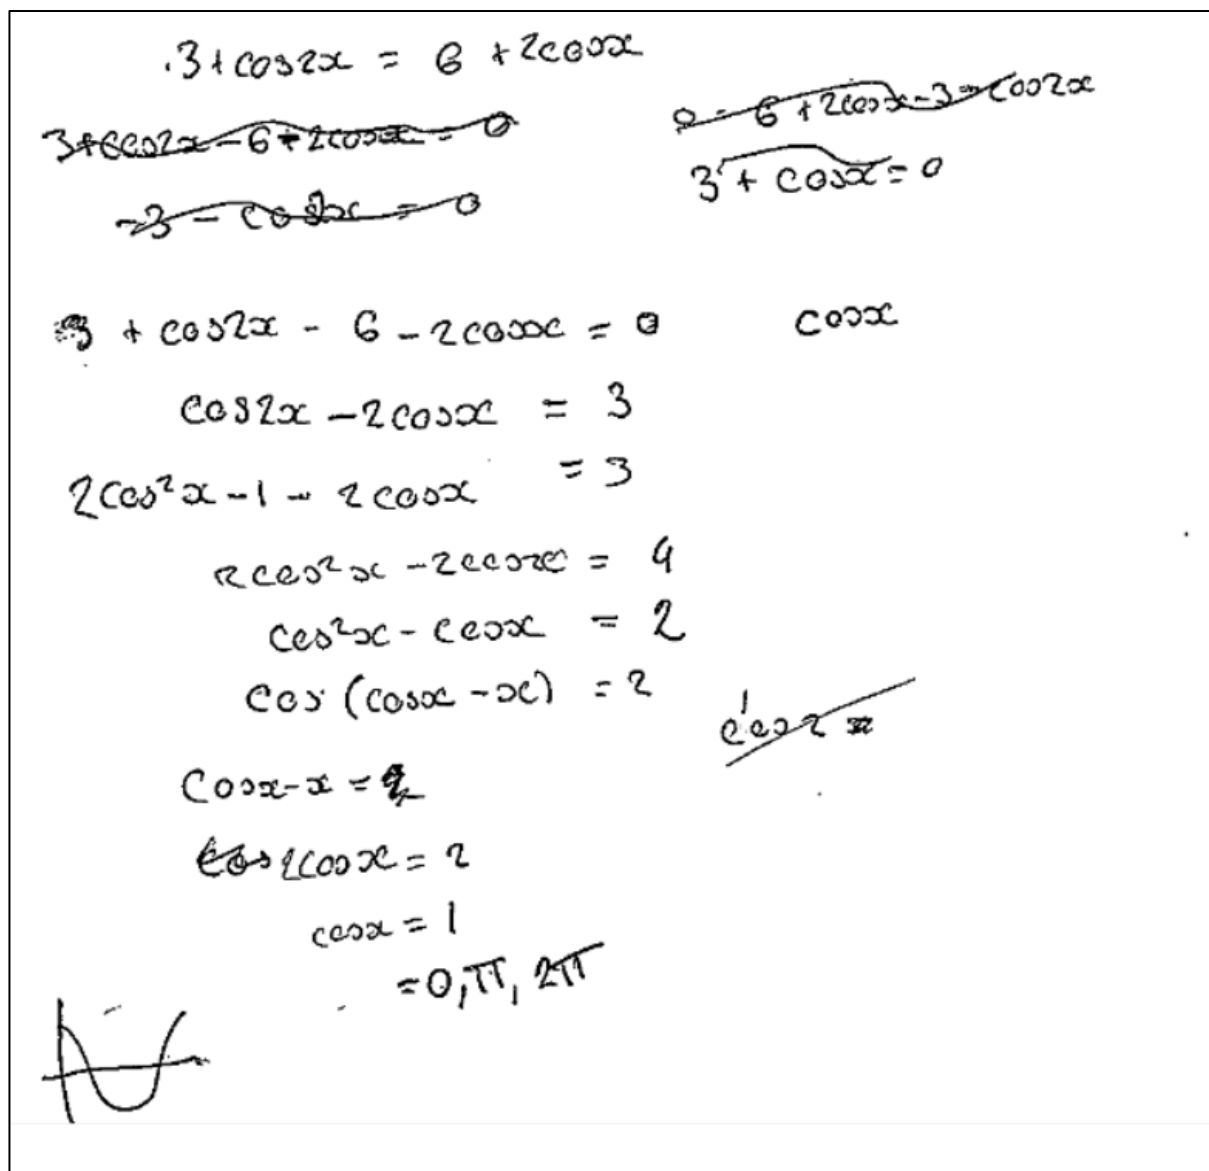 3 + cos2x = 6 + 2cosx
3 + cos2x - 6 - 2cosx = 0
0 = 6 + 2cosx - 3 - cos2x
-3 - cos2x = 0
3 + cosx = 0
3 + cos2x - 6 - 2cosx = 0
cosx
cos2x - 2cosx = 3
2cos²x - 1 - 2cosx = 3
2cos²x - 2cosx = 4
cos²x - cosx = 2
cos (cosx - x) = 2
cos 2 =
cosx - x =
cos 2cosx = 2
cosx = 1
= 0, π, 2π